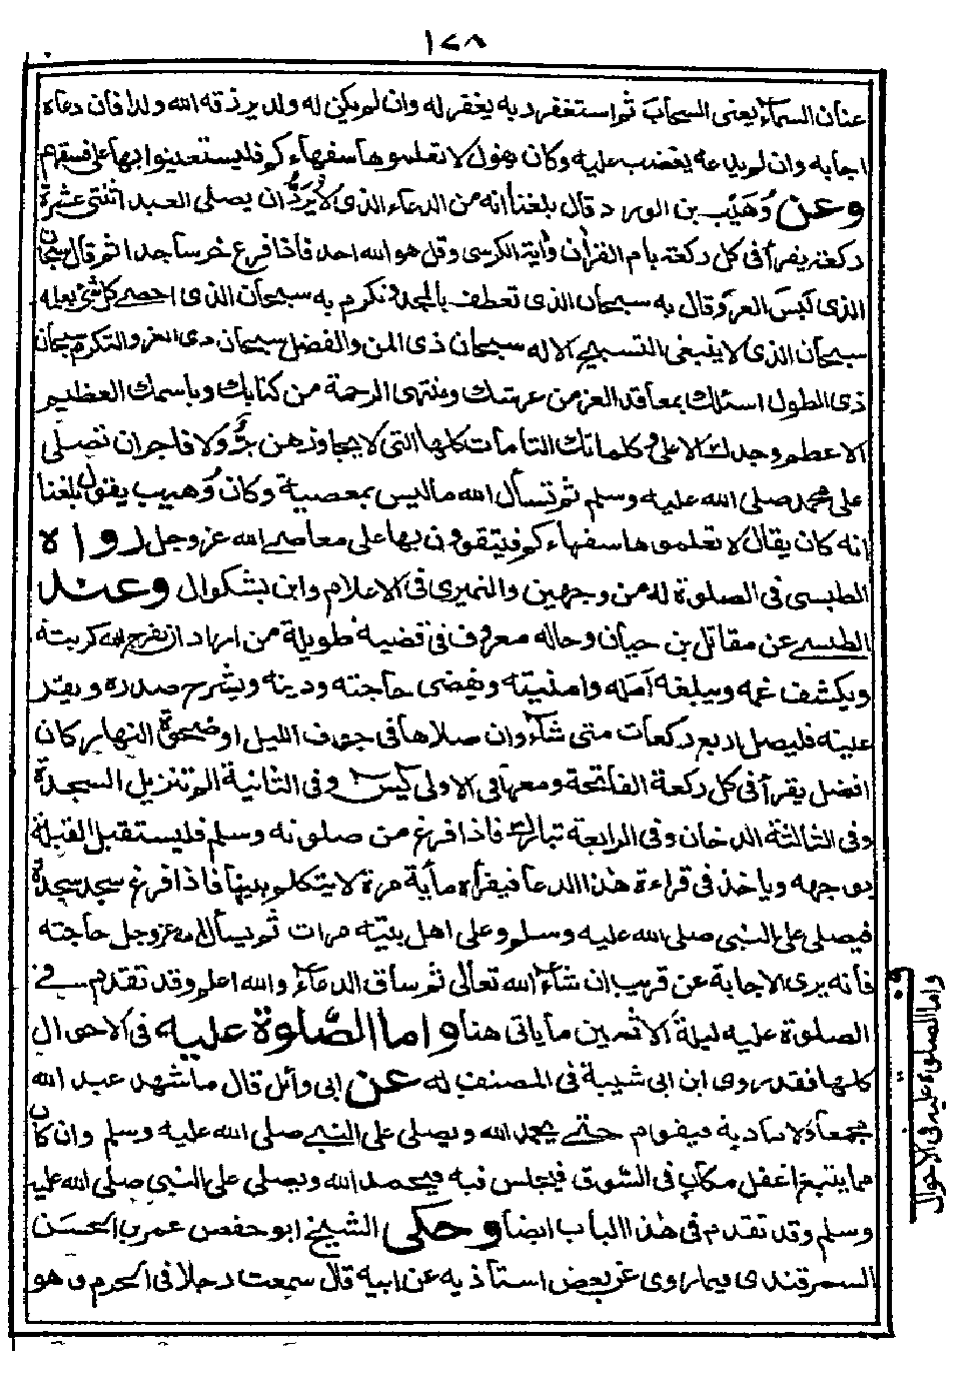 ١٧٨
عنان السماء يعنى السحاب ثم استغفر ربه يغفر له وان لم يكن له ولد يرزقه الله ولدا فان دعاه
اجابه وان لم يدعه يغضب عليه وكان يقول لا تعلموها سفهاءكم فليستعينوا بها على فسقهم
وعن وُهَيْب بن الورد قال بلغنا أنه من الدعاء الذى لا يُرَدُّ ان يصلى العبد اثنتى عشرة
ركعة يقرأ فى كل ركعة بام القرأن وأية الكرسى وقل هو الله احد فاذا فرغ خر ساجدا ثم قال سبحان
الذى لبس العز وقال به سبحان الذى تعطف بالمجد وتكرم به سبحان الذى احصى كل شئ بعلمه
سبحان الذى لا ينبغى التسبيح الا له سبحان ذى المن والفضل سبحان ذى العز والتكرم سبحان
ذى الطول اسئلك بمعاقد العز من عرشك ومنتهى الرحمة من كتابك وباسمك العظيم
الاعظم وجدك الاعلى وكلماتك التامات كلها التى لا يجاوزهن بَرٌّ ولا فاجر ان تصلى
على محمد صلى الله عليه وسلم ثم تسأل الله ما ليس بمعصية وكان وُهيب يقول بلغنا
انه كان يقال لا تعلموها سفهاءكم فيتقوون بها على معاصى الله عز وجل رواه
الطبسى فى الصلوة له من وجهين والنميرى فى الاعلام وابن بشكوال وعند
الطبسى عن مقاتل بن حيان وحاله معروف فى قضية طويلة من اراد ان يفرج الله كربته
ويكشف غمه ويبلغه أمله وامنيته ويقضى حاجته ودينه ويشرح صدره ويقر
عينه فليصل اربع ركعات متى شاء وان صلاها فى جوف الليل او ضحوة النهار كان
افضل يقرأ فى كل ركعة الفاتحة ومعها فى الاولى يٰس وفى الثانية الم تنزيل السجدة
وفى الثالثة الدخان وفى الرابعة تبارك فاذا فرغ من صلوته وسلم فليستقبل القبلة
بوجهه وياخذ فى قراءة هذا الدعا فيقرأه مأية مرة لا يتكلم بينها فاذا فرغ سجد سجدة
فيصلى على النبى صلى الله عليه وسلم وعلى اهل بيته مرات ثم يسأل الله عز وجل حاجته
فأنه يرى الاجابة عن قريب ان شاء الله تعالى ثم ساق الدعاء والله اعلم وقد تقدم فى
الصلوة عليه ليلة الاثنين ما ياتى هنا واما الصَّلوة عليه فى الاحوال
كلها فقد روى ابن ابى شيبة فى المصنف له عن ابى وائل قال ما شهد عبد الله
مجمعا ولا مأدبة فيقوم حتى يحمد الله ويصلى على النبى صلى الله عليه وسلم وان كان
مما يتبع اغفل مكان فى السُّوق فيجلس فيه فيحمد الله ويصلى على النبى صلى الله عليه
وسلم وقد تقدم فى هذا الباب ايضا وحكى الشيخ ابو حفص عمر بن الحسَن
السمرقندى فيما روى عن بعض استاذيه عن ابيه قال سمعت رجلا فى الحرم وهو
واما الصلوة عليه فى الاحوال